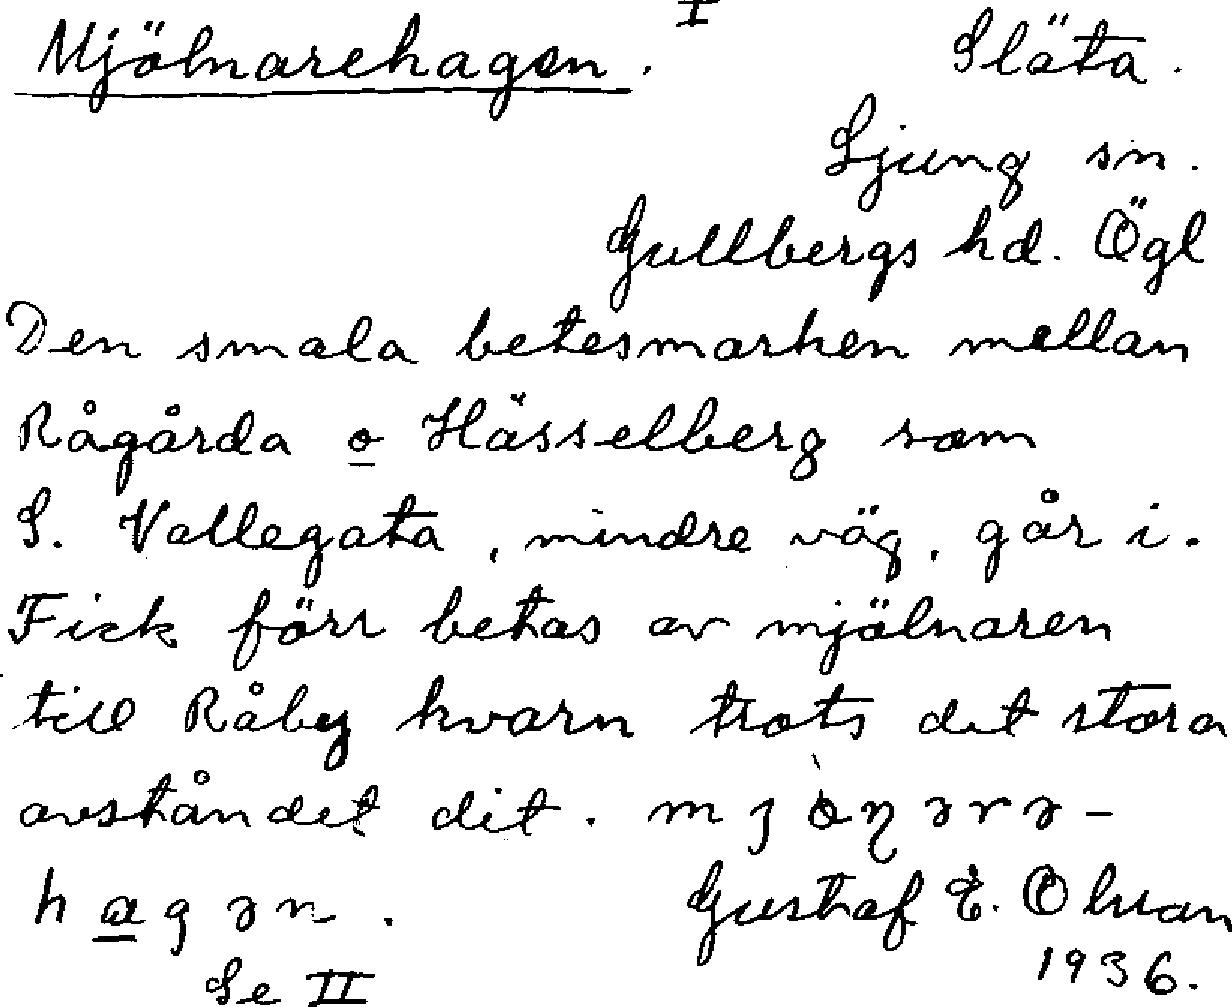 I
Mjölnarehagen. Släta.
Ljung sn.
Gullbergs hd. Ögl
Den smala betesmarken mellan
Rågårda o Hässelberg som
S. Vallegata, mindre väg, går i.
Fick förr betas av mjölnaren
till Råby kvarn trots det stora
avståndet dit.
Gustaf E. Olsson
Se II 1936.